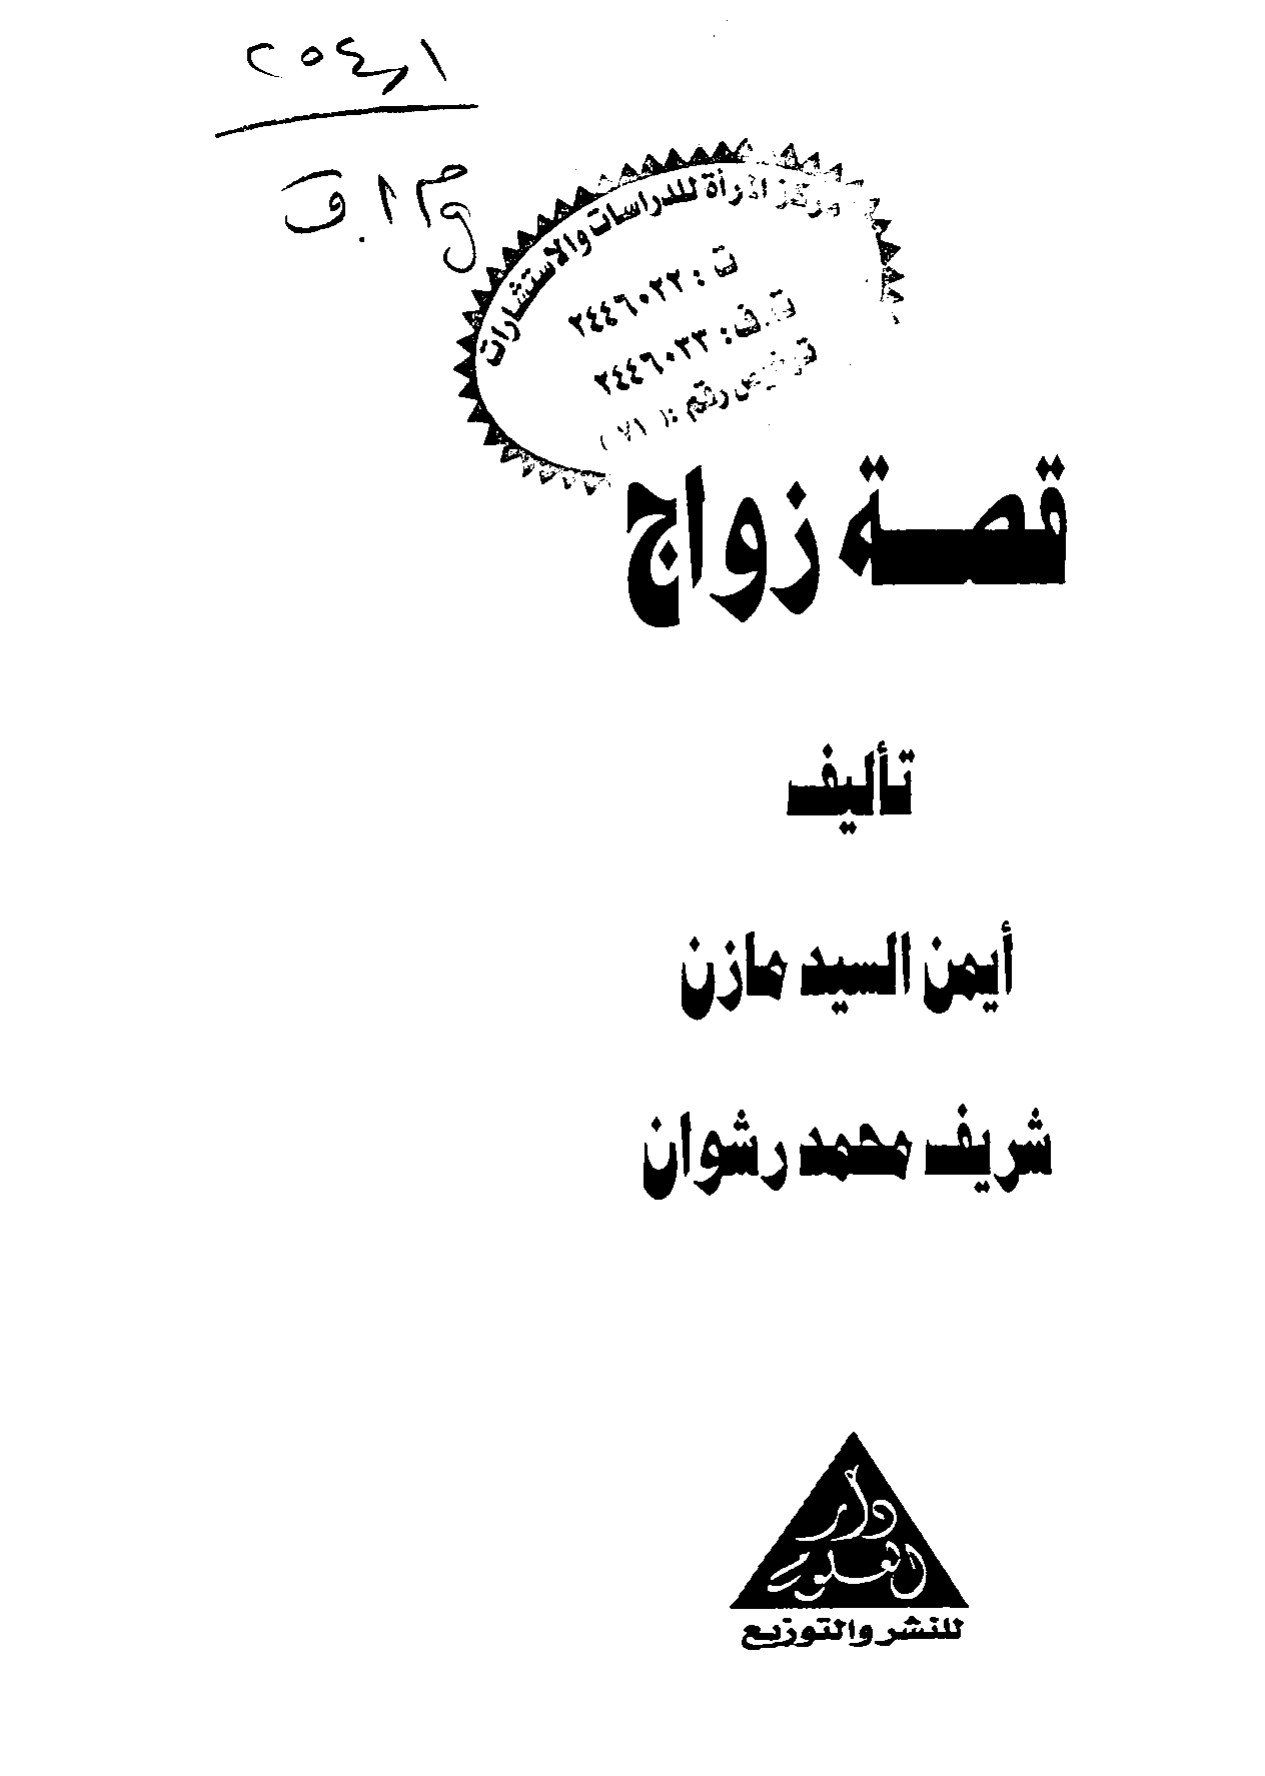 مركز المرأة للدراسات والاستشارات
ت : ٢٤٤٦٠٢٢
ت.ف: ٢٤٤٦٠٣٣
ترخيص رقم :( ٧١ )
قصة زواج
تأليف
أيمن السيد مازن
شريف محمد رشوان
دار
العلوم
للنشر والتوزيع